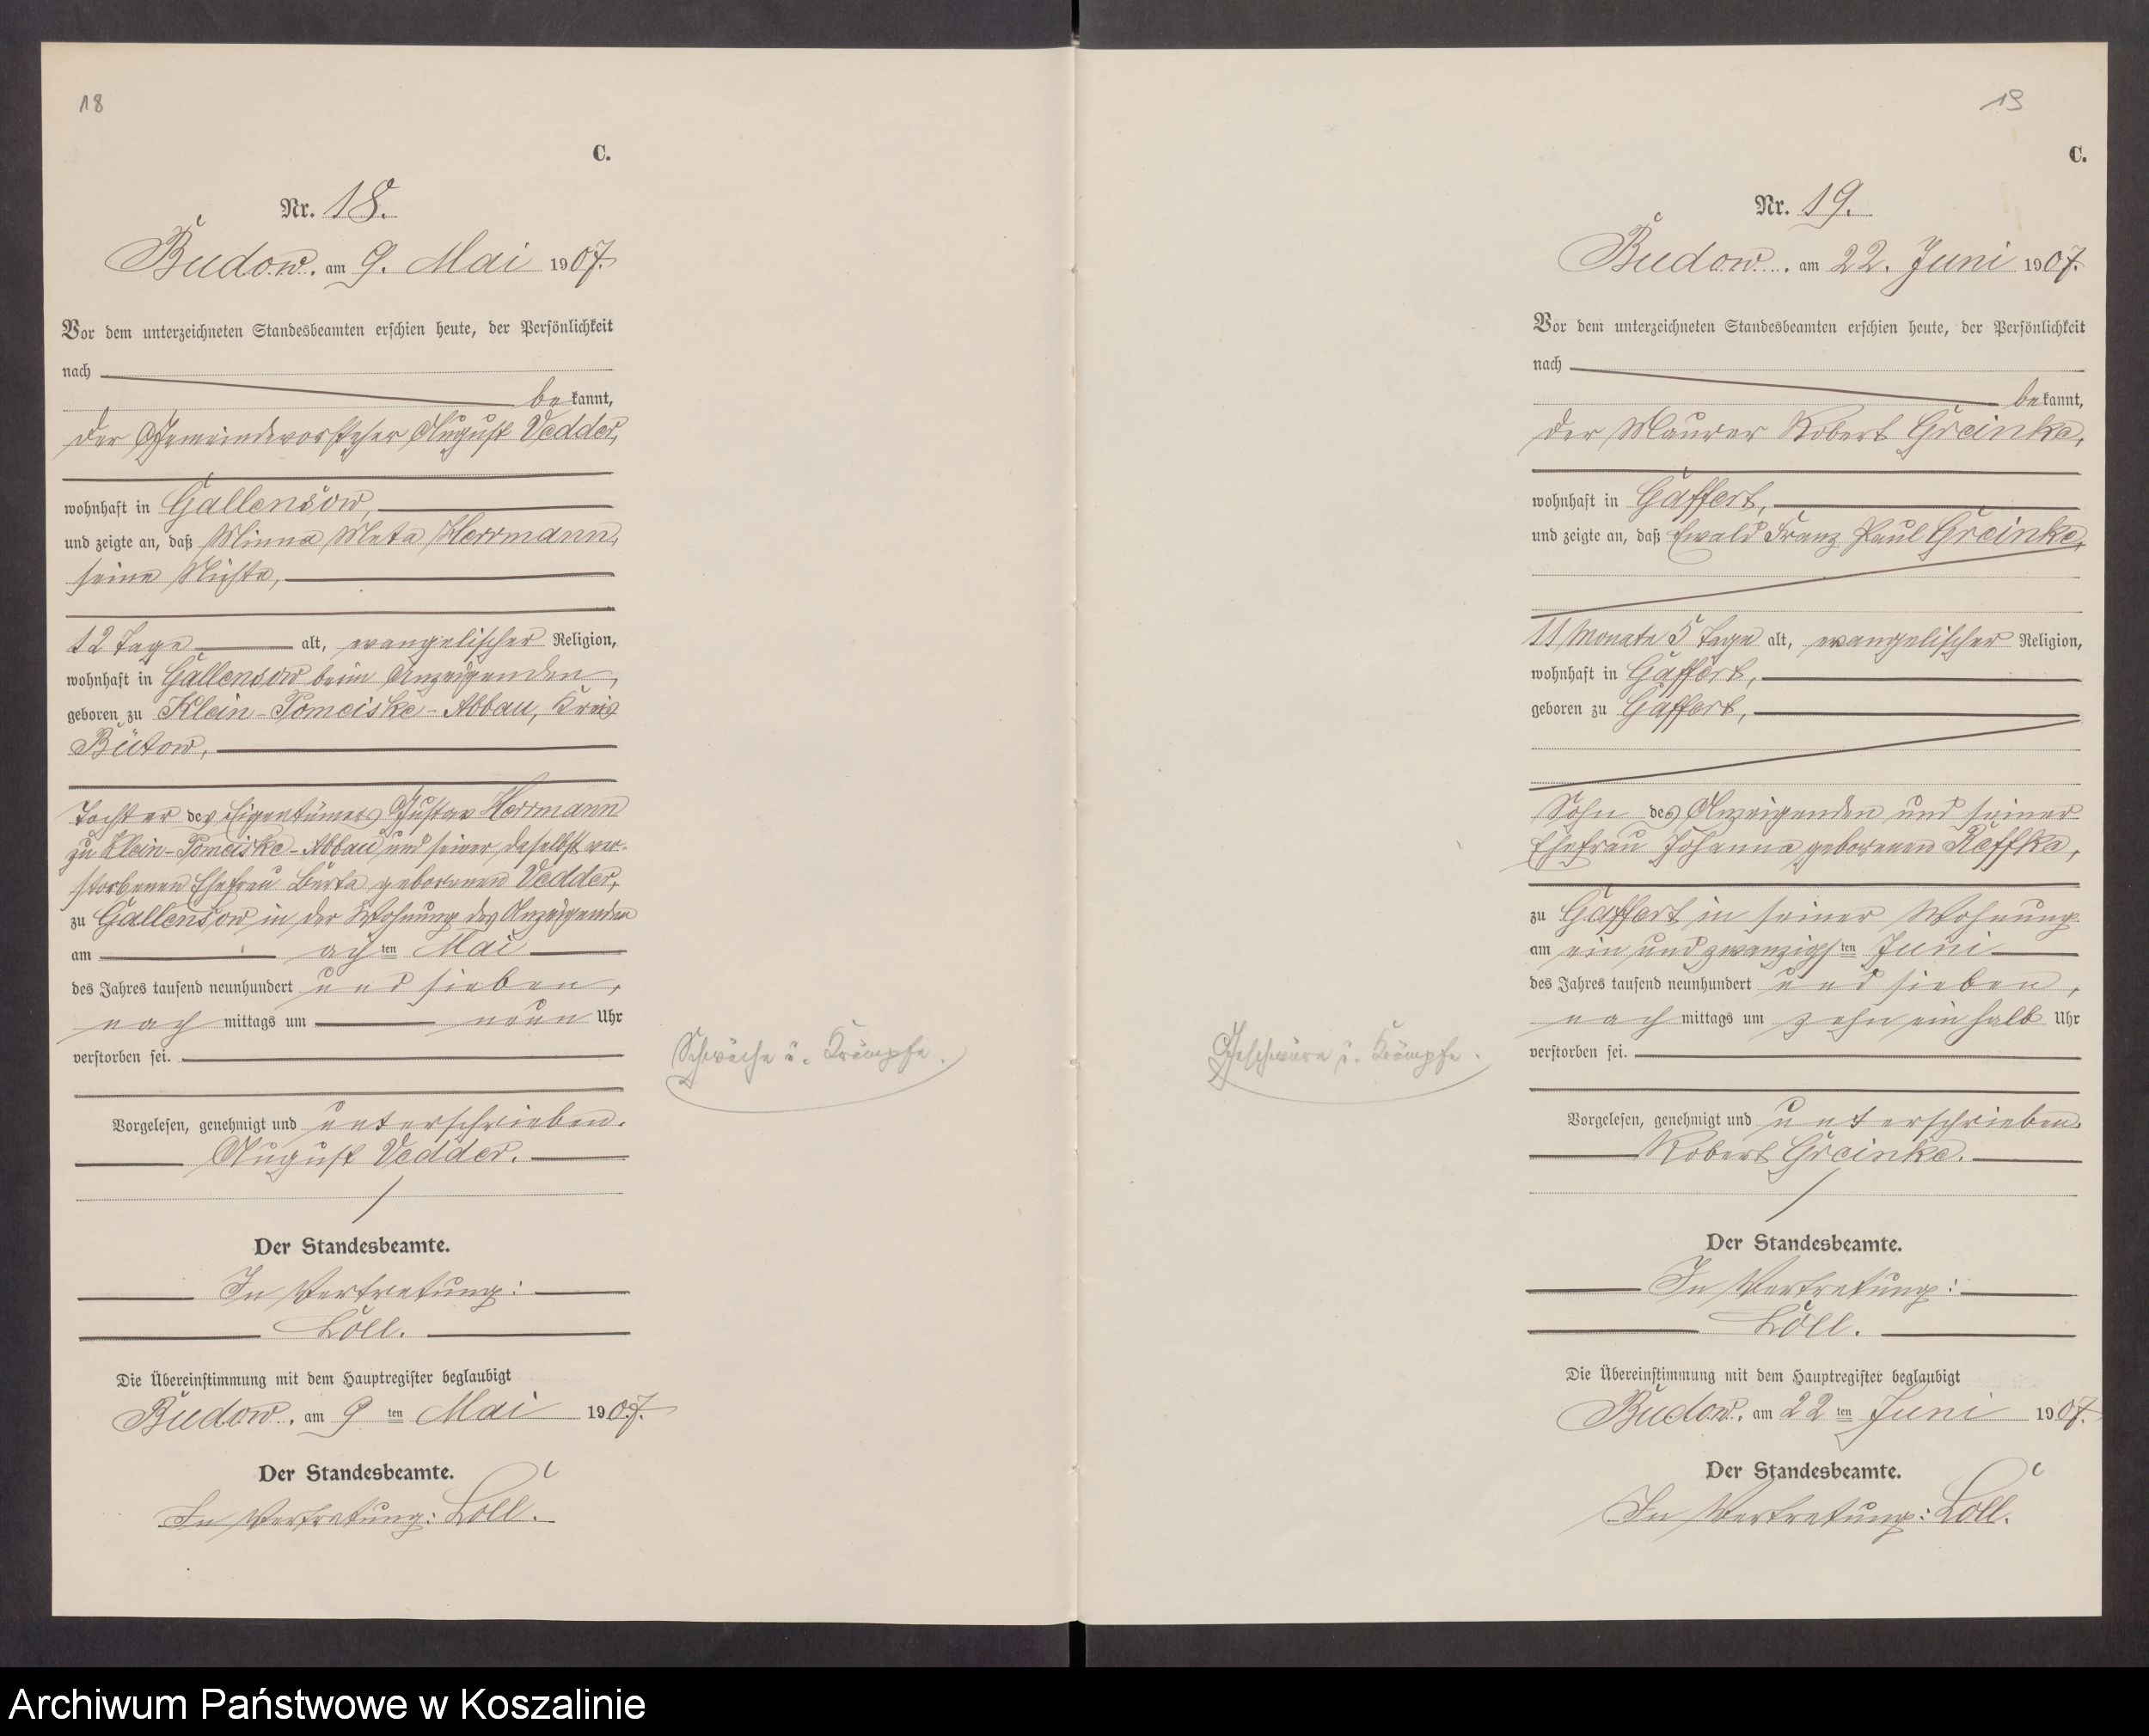 18
C.
Nr. 18.
Budow. am 9. Mai 1907.
Vor dem unterzeichneten Standesbeamten erschien heute, der Persönlichkeit
nach
bekannt,
der Gemeindevorsteher August Vedder,
wohnhaft in Gallensow,
und zeigte an, daß Minna Meta Herrmann,
seine Nichte,
12 Tage alt, evangelischer Religion,
wohnhaft in Gallensow beim Anzeigenden,
geboren zu Klein-Pomeiske-Abbau, Kreis
Bütow,
Tochter des Eigentümers Gustav Herrmann
zu Klein-Pomeiske-Abbau und seiner daselbst ver-
storbenen Ehefrau Berta geborenen Vedder,
zu Gallensow in der Wohnung des Anzeigenden
am achten Mai
des Jahres tausend neunhundert und sieben,
nach mittags um neun Uhr
verstorben sei.
Schwäche u. Krämpfe.
Vorgelesen, genehmigt und unterschrieben.
August Vedder.
Der Standesbeamte.
In Vertretung:
Löll.
Die Übereinstimmung mit dem Hauptregister beglaubigt
Budow. am 9 ten Mai 1907.
Der Standesbeamte.
In Vertretung: Löll.
19
C.
Nr. 19.
Budow. am 22. Juni 1907.
Vor dem unterzeichneten Standesbeamten erschien heute, der Persönlichkeit
nach
bekannt,
der Maurer Robert Greinke,
wohnhaft in Gaffert,
und zeigte an, daß Ewald Franz Paul Greinke,
11 Monate 5 Tage alt, evangelischer Religion,
wohnhaft in Gaffert,
geboren zu Gaffert,
Sohn des Anzeigenden und seiner
Ehefrau Johanna geborenen Reffke,
zu Gaffert in seiner Wohnung
am ein und zwanzigsten Juni
des Jahres tausend neunhundert und sieben,
nach mittags um zehn ein halb Uhr
verstorben sei.
Geschwüre u. Krämpfe.
Vorgelesen, genehmigt und unterschrieben.
Robert Greinke.
Der Standesbeamte.
In Vertretung:
Löll.
Die Übereinstimmung mit dem Hauptregister beglaubigt
Budow. am 22 ten Juni 1907.
Der Standesbeamte.
In Vertretung: Löll.
Archiwum Państwowe w Koszalinie